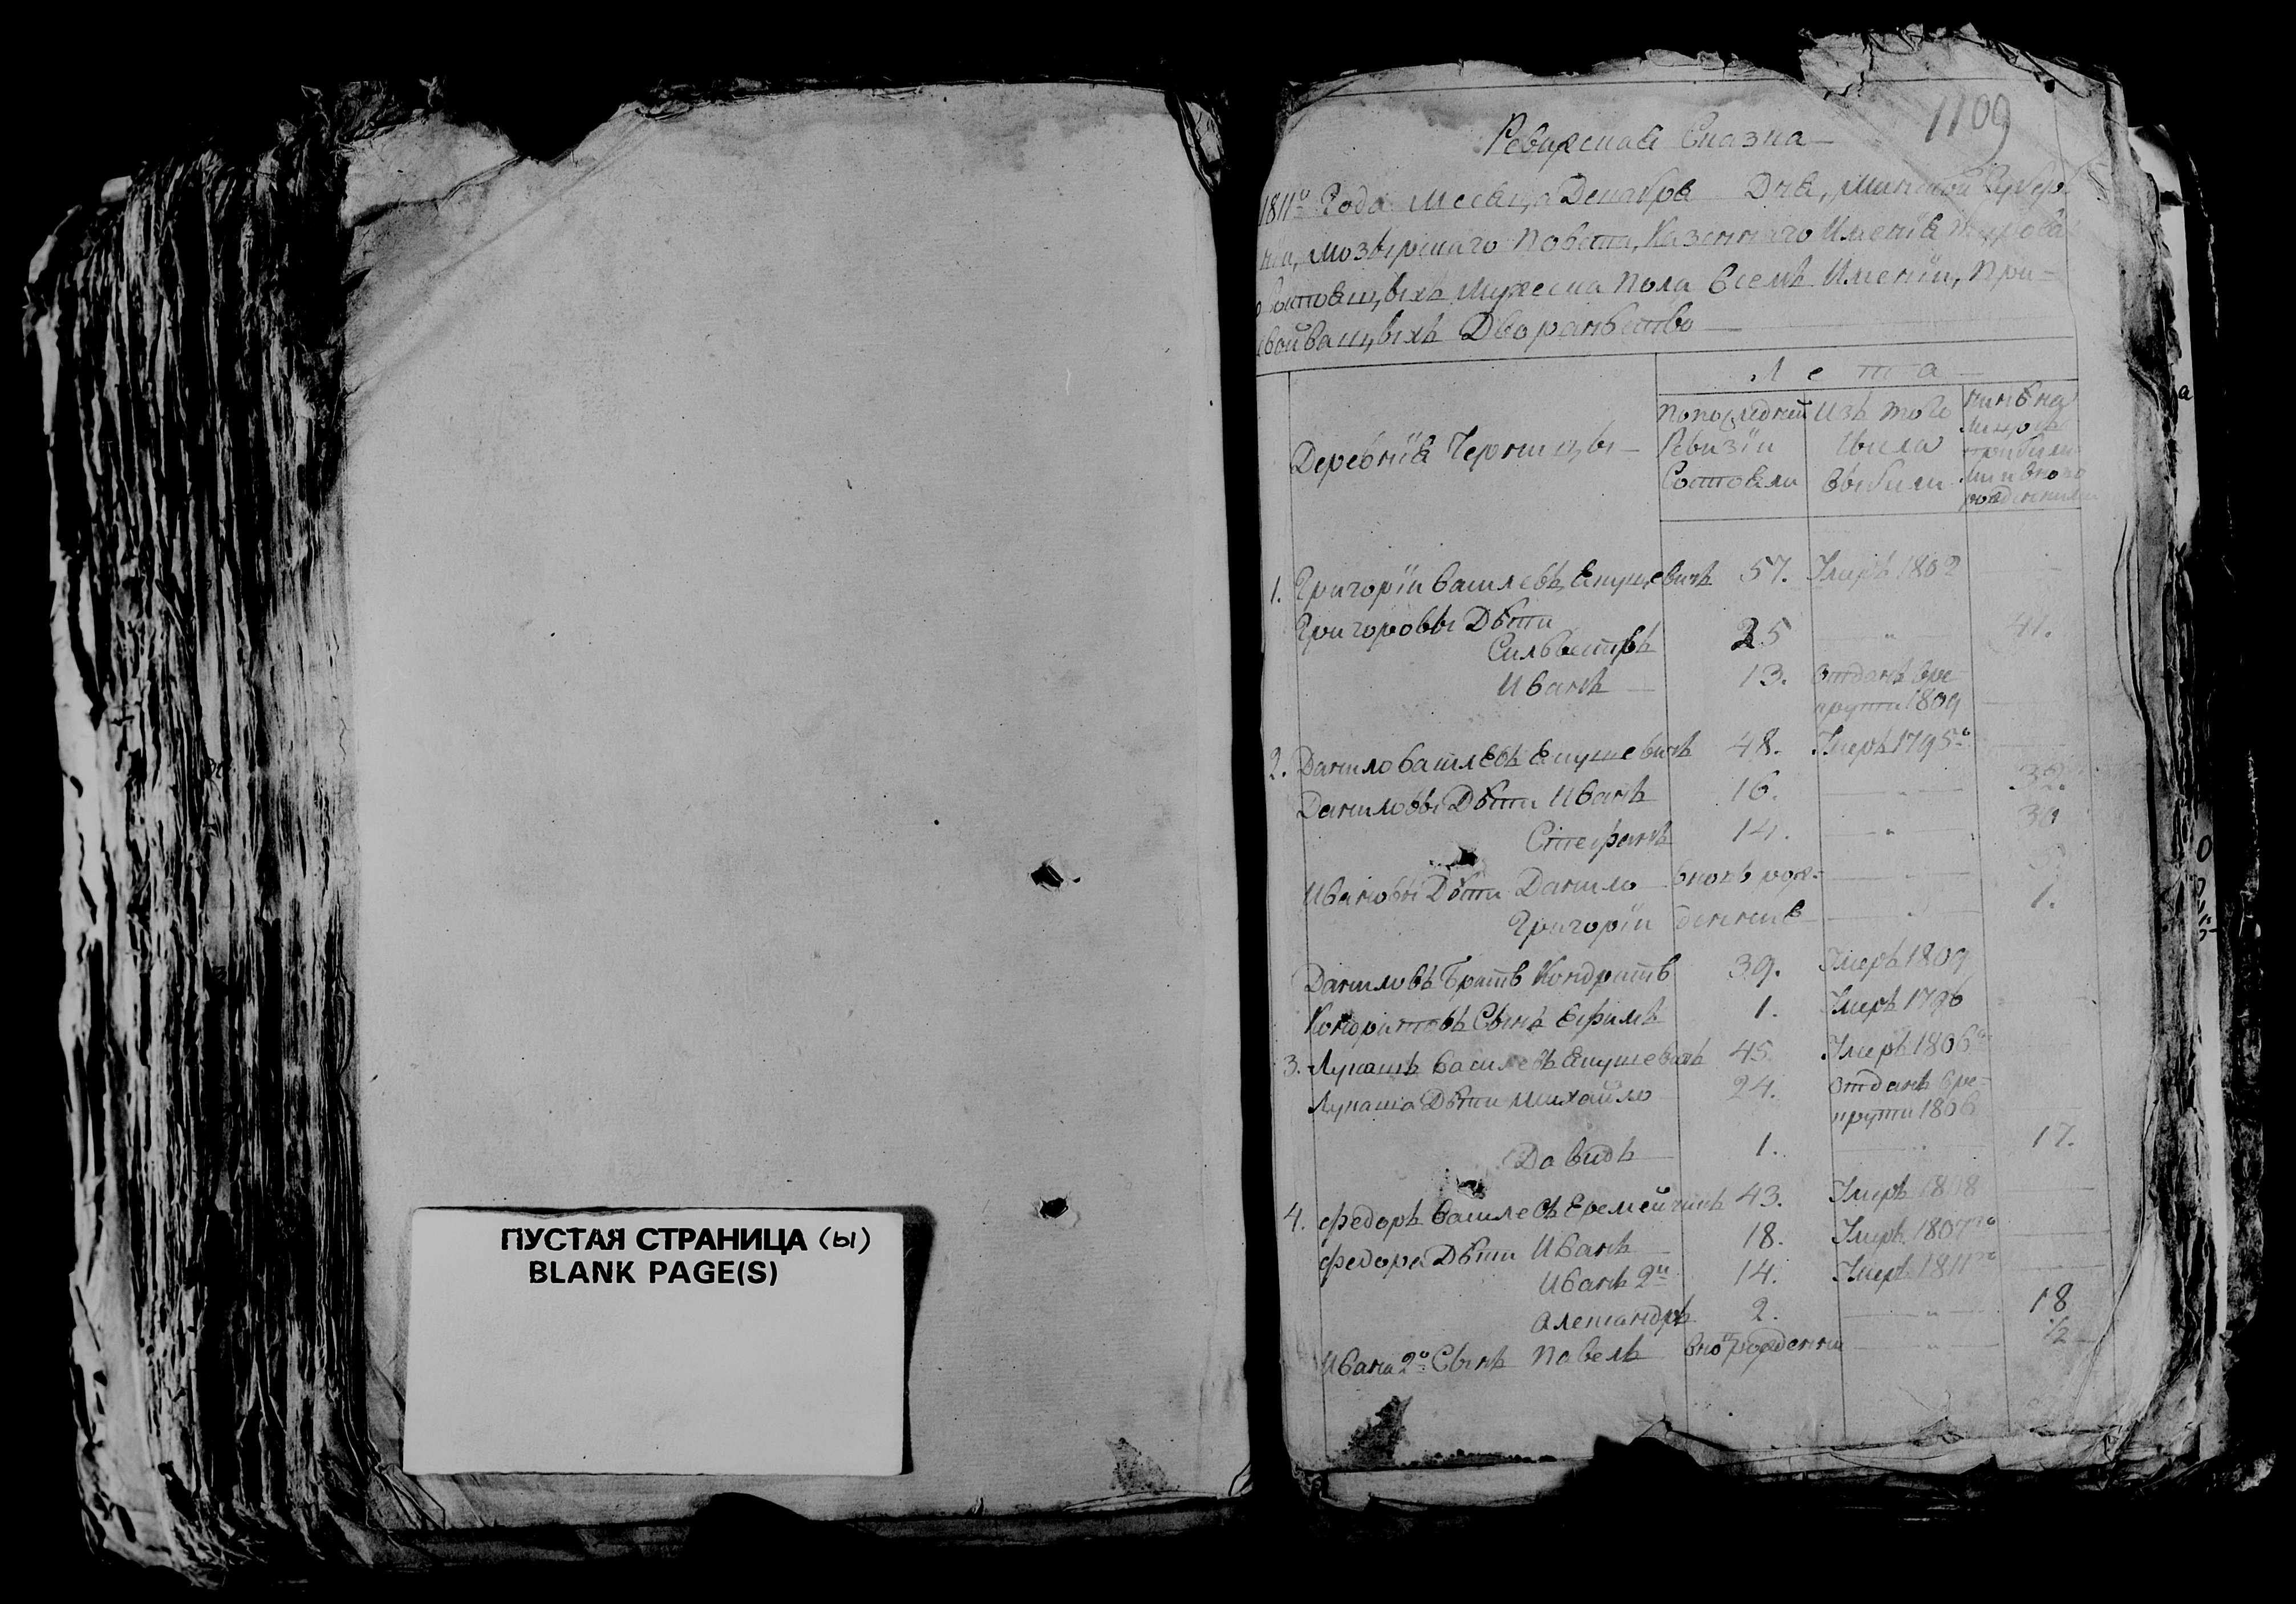 ПУСТАЯ СТРАНИЦА (ы)
BLANK PAGE(S)
1109
Ревижская Сказка
1811го Года Месяца Декабря Дня, Минской Губер
нии, Мозырскаго Повета, Казеннаго Имения
состоящыхъ Мужеска Пола Всемъ Имении, При-
свойващыхъ Дворянство
Лета
Деревния Чернищы
По последней Ревизiи Состояли
Изъ того Числа Выбыли
прибыли и вново рожденными
1. Григорiи Василевъ Якушевичъ 57. Умеръ 1802
Григоровы Дѣти
Сильвестръ 25 " 41.
Иванъ 13. Отданъ Вре
круты 1809
2. Данило Василевъ Якушевичъ 48. Умеръ 1795го
Даниловы Дѣти Иванъ 16. " 32.
Стефанъ 14. " 30
Ивановы Дѣти Данило вновь рож-
Григорiи денние " 1.
Даниловъ Братъ Кондратъ 39. Умеръ 1809
Кондратовъ Сынъ Ефимъ 1. Умеръ 1796
3. Лукашъ Василевъ Якушевичъ 45. Умеръ 1806го
Лукаша Дѣти Михайло 24. Отданъ Вре-
круты 1806
Давидъ 1. " 17.
4. Федоръ Василевъ Еремейчикъ 43. Умеръ 1808
Федора Дѣти Иванъ 18. Умеръ 1807го
Иванъ 2й 14. Умеръ 1811го
Александръ 2. " 18
Ивана 2го Сынъ Павелъ вноворожденни " 1/2